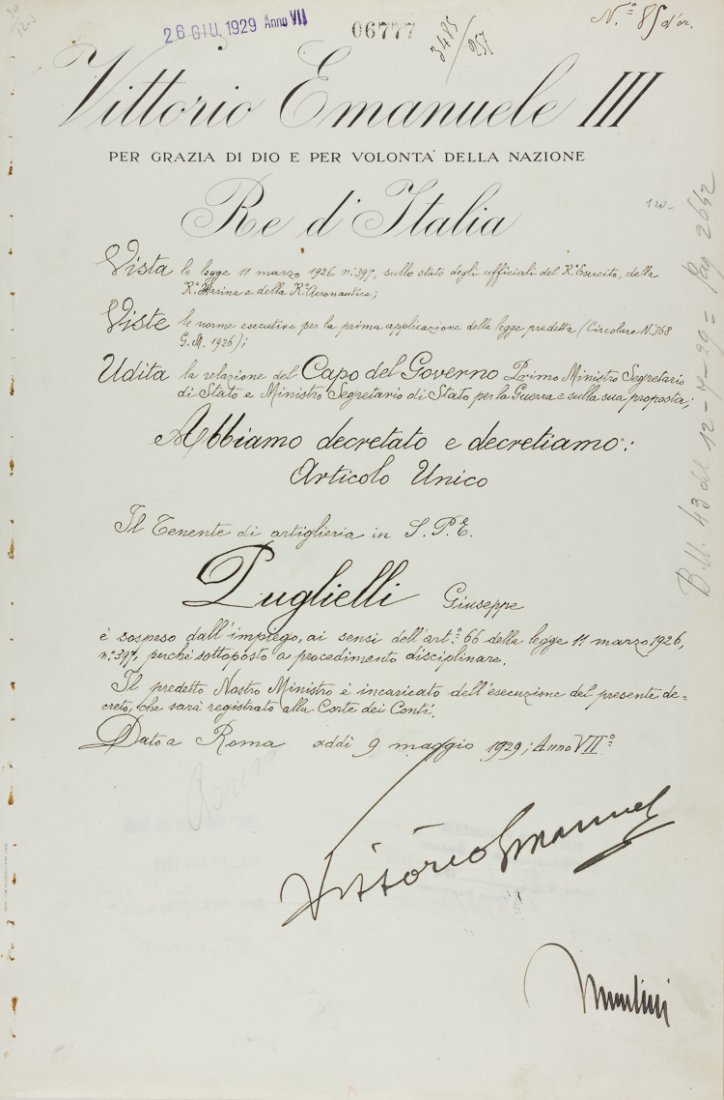 26 GIU. 1929 Anno VII
06777
3485/257
N.° 85 d'or.
Vittorio Emanuele III
PER GRAZIA DI DIO E PER VOLONTA' DELLA NAZIONE
Re d'Italia
Vista la legge 11 marzo 1926, n.° 397, sullo stato degli ufficiali del R.° Esercito, della
R.a Marina e della R.a Aeronautica;
Viste le norme esecutive per la prima applicazione della legge predetta (Circolare N.° 368
G. M. 1926);
Udita la relazione del Capo del Governo Primo Ministro Segretario
di Stato e Ministro Segretario di Stato per la Guerra e sulla sua proposta;
Abbiamo decretato e decretiamo:
Articolo Unico
Il Tenente di artiglieria in S. P. E.
Puglielli Giuseppe
è sospeso dall'impiego, ai sensi dell'art.° 66 della legge 11 marzo 1926,
n.° 397, perché sottoposto a procedimento disciplinare.
Il predetto Nostro Ministro è incaricato dell'esecuzione del presente de=
creto, che sarà registrato alla Corte dei Conti.
Dato a Roma addì 9 maggio 1929; Anno VII°
Vittorio Emanuele
Mussolini
B.U. 43 del 12-7-29 = Pag 2642